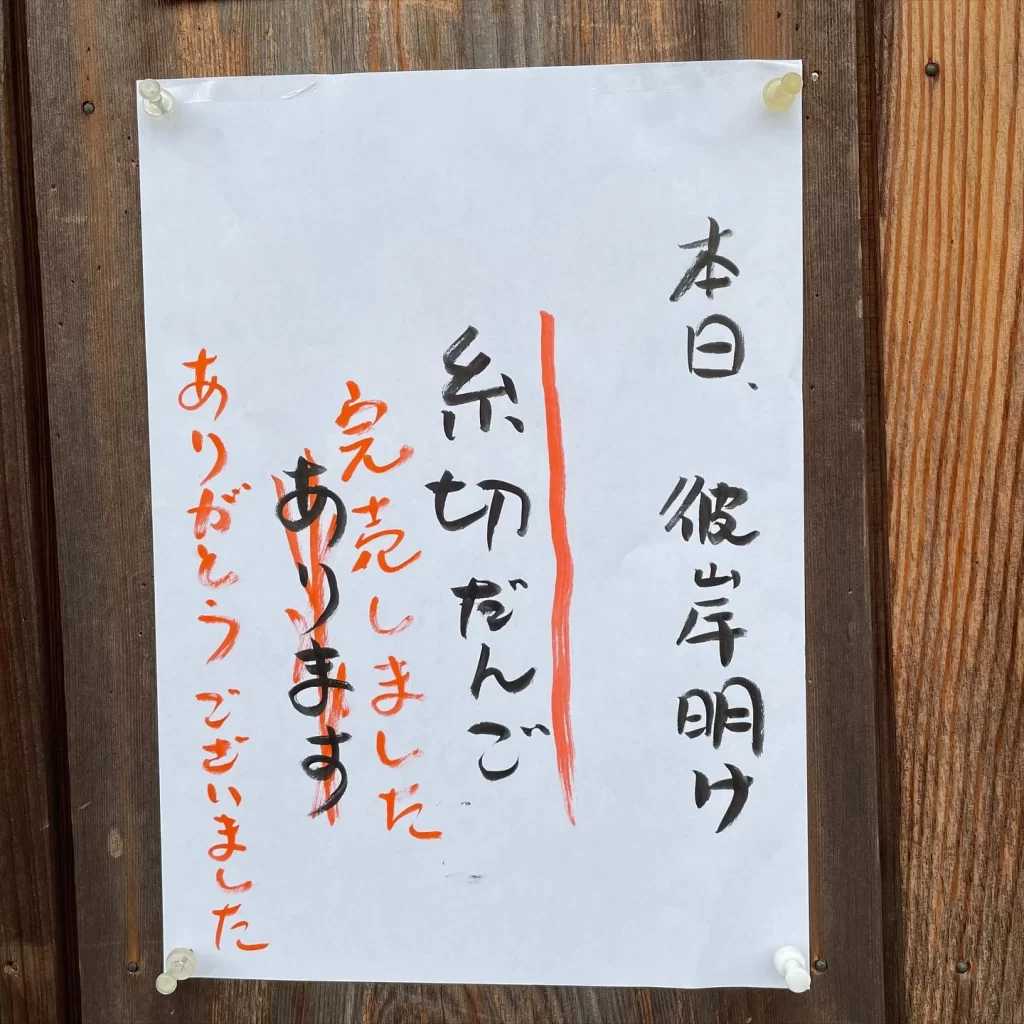 本日、彼岸明け
糸切だんご
完売しました
あります
ありがとうございました